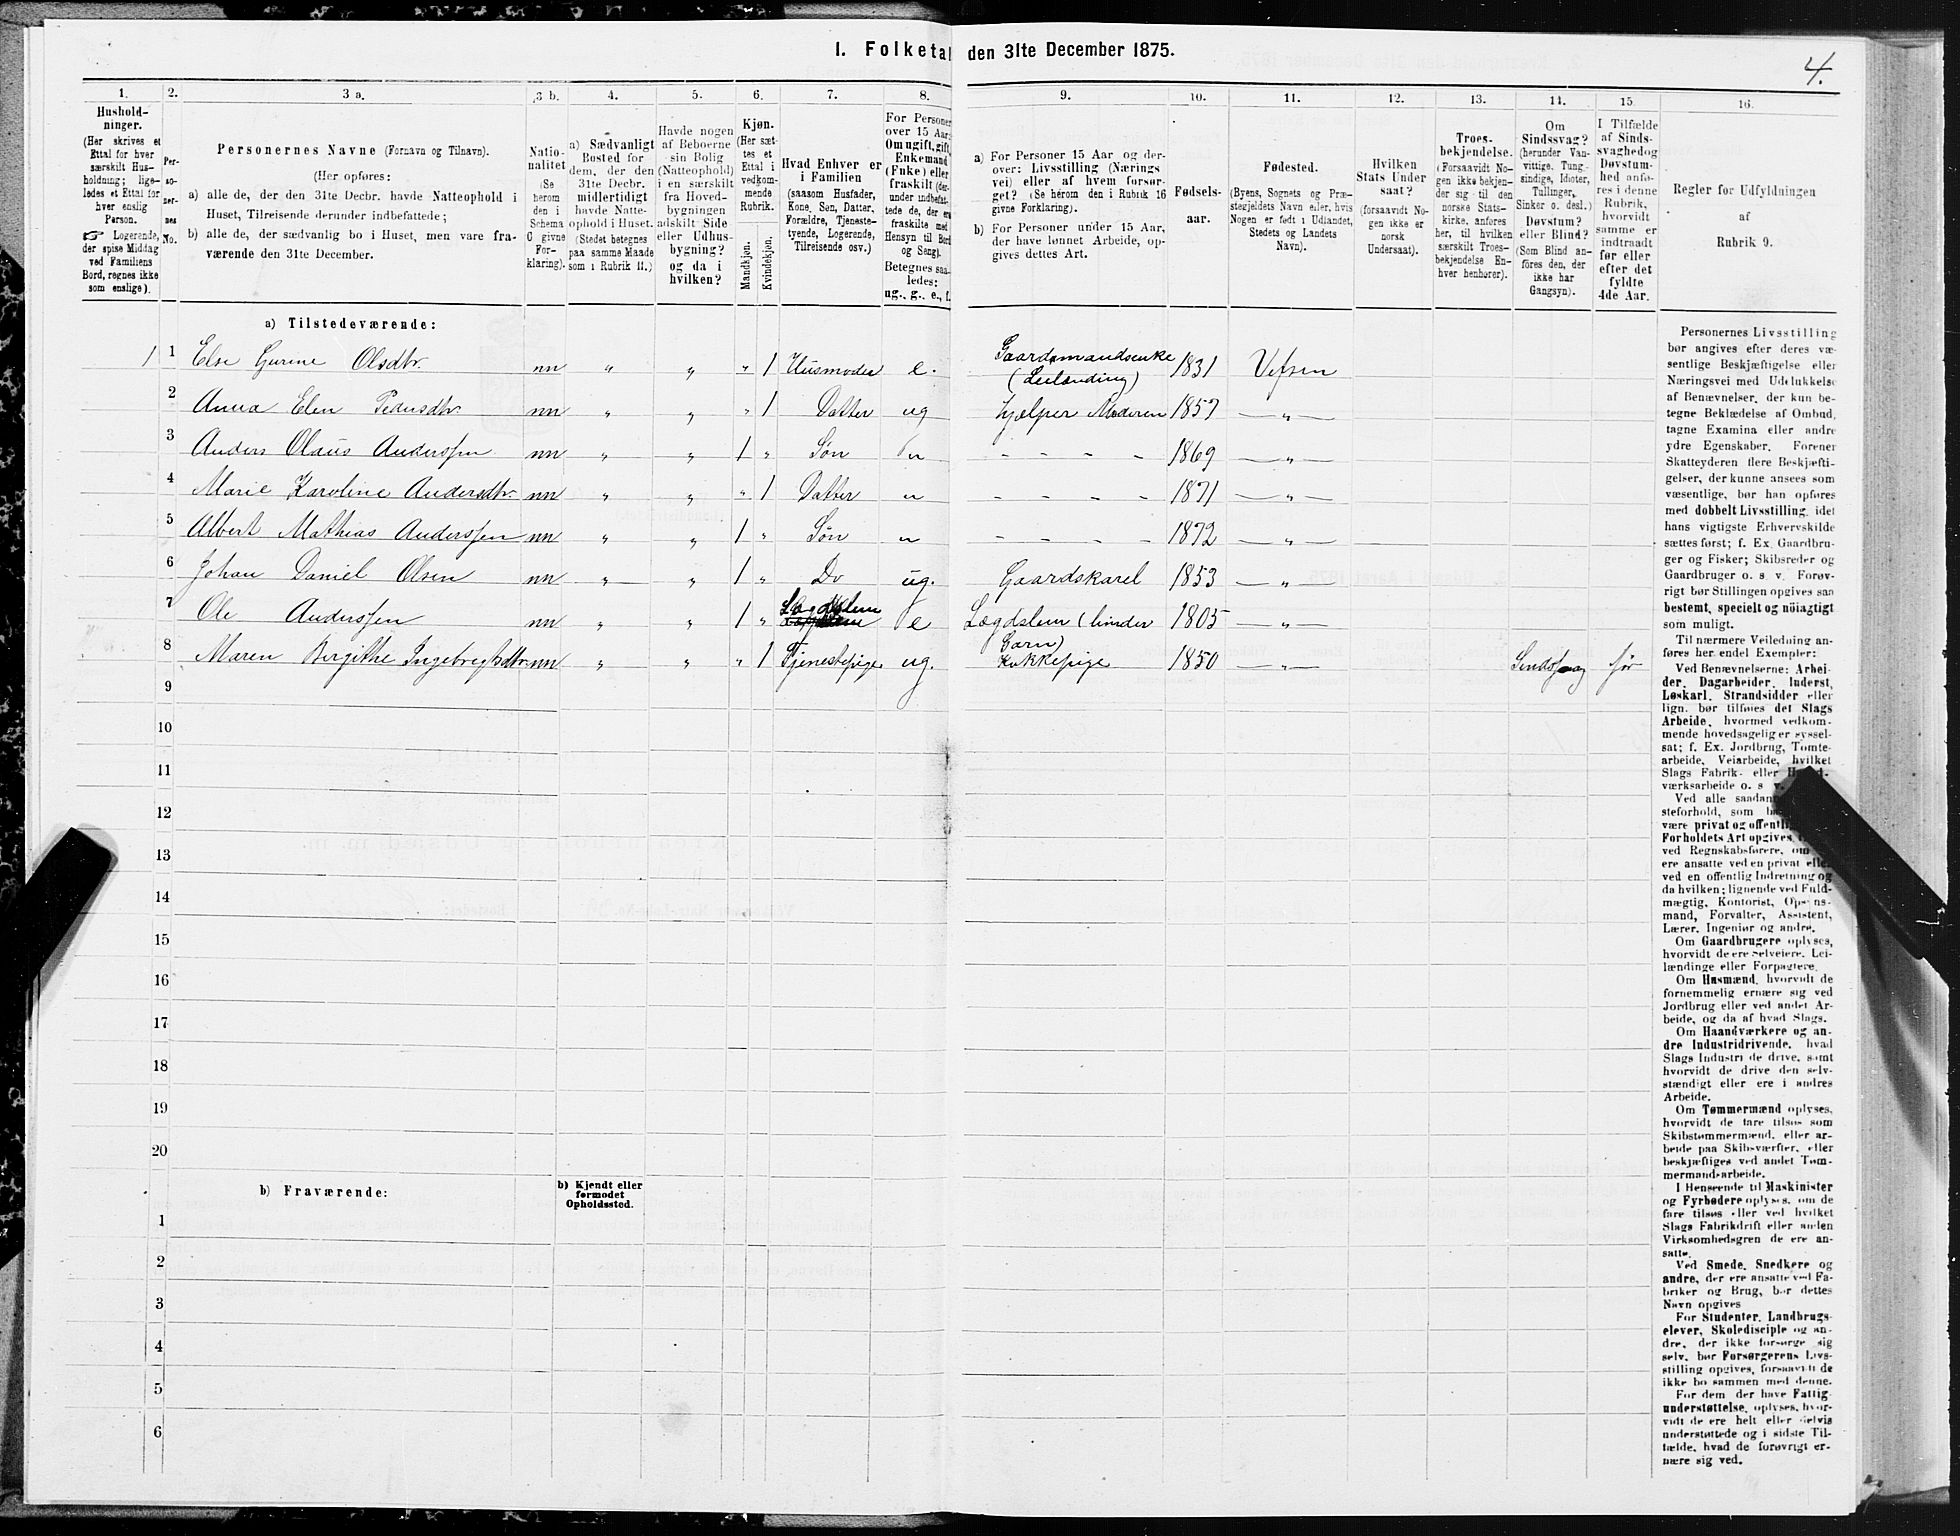 I. Folketal den 31te December 1875.
4.
1. 2. 3 a. 3 b. 4. 5. 6. 7. 8. 9. 10. 11. 12. 13. 14. 15. 16.
Hushold-
ninger.
(Her skrives et
Ettal for hver
særskilt Hus-
holdning; lige-
ledes et Ettal for
hver enslig
Person.
☞ Logerende,
der spise Middag
ved Familiens
Bord, regnes ikke
som enslige).
Per-
so-
ner-
nes
No.
Personernes Navne (Fornavn og Tilnavn).
(Her opføres:
a) alle de, der den 31te Decbr. havde Natteophold i
Huset, Tilreisende derunder indbefattede;
b) alle de, der sædvanlig bo i Huset, men vare fra-
værende den 31te December.
Natio-
nalitet
(Se
herom
den i
Schema
G givne
For-
klaring).
a) Sædvanligt
Bosted for
dem, der den
31te Decbr.
midlertidigt
havde Natte-
ophold i Huset.
(Stedet betegnes
paa samme Maade
som i Rubrik 11.)
Havde nogen
af Beboerne
sin Bolig
(Natteophold)
i en særskilt
fra Hoved-
bygningen
adskilt Side
eller Udhus-
bygning?
og da i
hvilken?
Kjøn.
(Her sæt-
tes et
Ettal i
vedkom-
mende
Rubrik.
Mandkjøn.
Kvindekjøn.
Hvad Enhver er
i Familien
(saasom Husfader,
Kone, Søn, Datter,
Forældre, Tjeneste-
tyende, Logerende,
Tilreisende osv.)
For Personer
over 15 Aar:
Om ugift, gift,
Enkemand
(Enke) eller
fraskilt (der-
under indbefat-
tede de, der ere
fraskilte med
Hensyn til Bord
og Seng).
Betegnes saa-
ledes:
ug., g., e., f.
a) For Personer 15 Aar og der-
over: Livsstilling (Nærings
vei) eller af hvem forsør-
get? (Se herom den i Rubrik 16
givne Forklaring).
b) For Personer under 15 Aar,
der have lønnet Arbeide, op-
gives dettes Art.
Fødsels-
aar.
Fødested.
(Byens, Sognets og Præ-
stegjeldets Navn eller, hvis
Nogen er født i Udlandet,
Stedets og Landets
Navn).
Hvilken
Stats Under
saat?
(forsaavidt No-
gen ikke er
norsk
Undersaat).
Troes-
bekjendelse.
(Forsaavidt No-
gen ikke bekjen-
der sig til den
norske Stats-
kirke, anføres
her, til hvilken
særskilt Troes-
bekjendelse En-
hver henhører).
Om
Sindssvag?
(herunder Van-
vittige, Tung-
sindige, Idioter,
Tullinger,
Sinker o. desl.)
Døvstum?
eller Blind?
(Som Blind an-
føres den, der
ikke har
Gangsyn).
I Tilfælde
af Sinds-
svaghed og
Døvstum-
hed anfø-
res i denne
Rubrik,
hvorvidt
samme er
indtraadt
før eller
efter det
fyldte
4de Aar.
Regler for Udfyldningen
af
Rubrik 9.
a) Tilstedeværende:
1 1 Else Gurine Olsdtr. nn " " " 1 Husmoder e. Gaardmandsenke (Leilænding) 1831 Vefsen
2 Anna Elen Pedersdtr. nn " " " 1 Datter ug Hjælper Moderen 1857 — " —
3 Anders Olaus Anderssen nn " " 1 " Søn " - - - - 1869 — " —
4 Marie Karoline Andersdtr. nn " " " 1 Datter " - - - - 1871 — " —
5 Albert Mathias Anderssen nn " " 1 " Søn " - - - - 1872 — " —
6 Johan Daniel Olsen nn " " 1 " Do ug. Gaardskarel 1853 — " —
7 Ole Anderssen nn " " 1 " Lægdslem e Lægdslem (binder Garn) 1805 — " —
8 Maren Birgithe Ingebregtsdtr. nn " " " 1 Tjenestepige ug. Kokkepige 1850 — " — Sindssvag før
9
10
11
12
13
14
15
16
17
18
19
20
b) Fraværende:
b) Kjendt eller
formodet
Opholdssted.
1
2
3
4
5
6
Personernes Livsstilling
bør angives efter deres væ-
sentlige Beskjæftigelse eller
Næringsvei med Udelukkelse
af Benævnelser, der kun be-
tegne Beklædelse af Ombud,
tagne Examina eller andre
ydre Egenskaber. Forener
Skatteyderen flere Beskjæfti-
gelser, der kunne ansees som
væsentlige, bør han opføres
med dobbelt Livsstilling, idet
hans vigtigste Erhvervskilde
sættes først; f. Ex. Gaardbru-
ger og Fisker; Skibsreder og
Gaardbruger o. s. v. Forøv-
rigt bør Stillingen opgives saa
bestemt, specielt og nöiagtigt
som muligt.
Til nærmere Veiledning an-
føres her endel Exempler:
Ved Benævnelserne: Arbei-
der, Dagarbeider, Inderst,
Løskarl, Strandsidder eller
lign. bør tilføies det Slags
Arbeide, hvormed vedkom-
mende hovedsagelig er syssel-
sat; f. Ex. Jordbrug, Tomte-
arbeide, Veiarbeide, hvilket
Slags Fabrik- eller
værksarbeide o. s. v.
Ved alle saadan
steforhold, som
være privat og offentli
Forholdets Art opgives,
ved Regnskabsførere, om
ere ansatte ved en privat eller
ved en offentlig Indretning og
da hvilken; lignende ved Fuld-
mægtig, Kontorist, Opsyns-
mand, Forvalter, Assistent,
Lærer, Ingeniør og andre.
Om Gaardbrugere oplyses,
hvorvidt de ere Selveiere, Lei-
lændinge eller Forpagtere.
Om Husmænd, hvorvidt de
fornemmelig ernære sig ved
Jordbrug eller ved andet Ar-
beide, og da af hvad Slags.
Om Haandværkere og an-
dre Industridrivende, hvad
Slags Industri de drive, samt
hvorvidt de drive den selv-
stændigt eller ere i andres
Arbeide.
Om Tømmermænd oplyses,
hvorvidt de fare tilsøs som
Skibstømmermænd, eller ar-
beide paa Skibsværfter, eller
beskjæftiges ved andet Tøm-
mermandsarbeide.
I Henseende til Maskinister
og Fyrbødere oplyses, om de
fare tilsøs eller ved hvilket
Slags Fabrikdrift eller anden
Virksomhedsgren de ere an-
satte.
Ved Smede, Snedkere og
andre, der ere ansatte ved Fa-
briker og Brug, bør dettes
Navn opgives
For Studenter, Landbrugs-
elever, Skoledisciple og an-
dre, der ikke forsørge sig
selv, bør Forsørgerens Livs-
stilling opgives, forsaavidt de
ikke bo sammen med denne.
For dem der have Fattig-
understøttelse, oplyses, hvor-
vidt de ere helt eller delvis
understøttede og i sidste Til-
fælde, hvad de forøvrigt er-
nære sig ved.